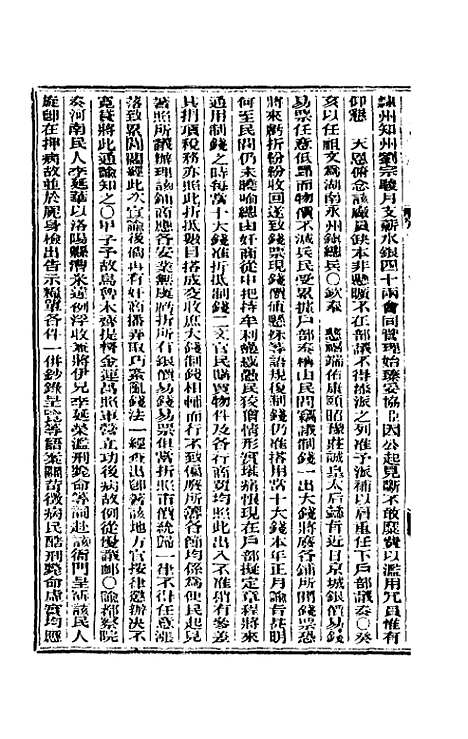 州知州劉宗駿月支薪水銀四十兩會同管理始臻妥協臣因公起見斷不敢糜費以濫用冗員惟有
仰懇 天恩俯念該廠員缺本非懸曠不在部議不得添派之列准予派補以肩重任下戶部議奏○癸
亥以任祖文為湖南永州鎮總兵○欽奉 慈禧端佑康頤昭豫莊誠皇太后懿旨近日京城銀價易錢
易票任意低昂而物價不減兵民受累據戶部奏稱山民間竊議制錢一出大錢將廢各鋪所開錢票恐
將來虧折紛紛收回遂致錢票現錢價值懸殊等語規復制錢仍准搭用當十大錢本年正月諭旨甚明
何至民間仍未曉喻總由奸商從中把持牟利熒惑愚氓狡儈情形實堪痛恨現在戶部擬定章程將來
通用制錢之時每當十大錢准折抵制錢二文官民購買物件及各行商賈均照此出入不准稍有參差
其捐項稅務亦照此折抵數目搭成交收庶大錢制錢相輔而行不致偏廢所議各節均係為便民起見
著照所議辦理該鋪商應各安業無虞虧折所有銀價易錢易票俱當折照市價統歸一律不得任意漲
落致累閭閻經此次宣諭後倘再有奸商播弄取巧紊亂錢法一經查出即著該地方官按律懲辦決不
寬貸將此通諭知之○甲子予故烏魯木齊提督金運昌照軍營立功後病故例從優議卹○諭都察院
奏河南民人李延華以洛陽縣漕米違例浮收並將伊兄李延榮濫刑斃命等詞赴該衙門呈訴該民人
旋即在押病故並於屍身檢出告示糧單各件一併鈔錄呈覽等語案關苛徵病民酷刑斃命虛實均應